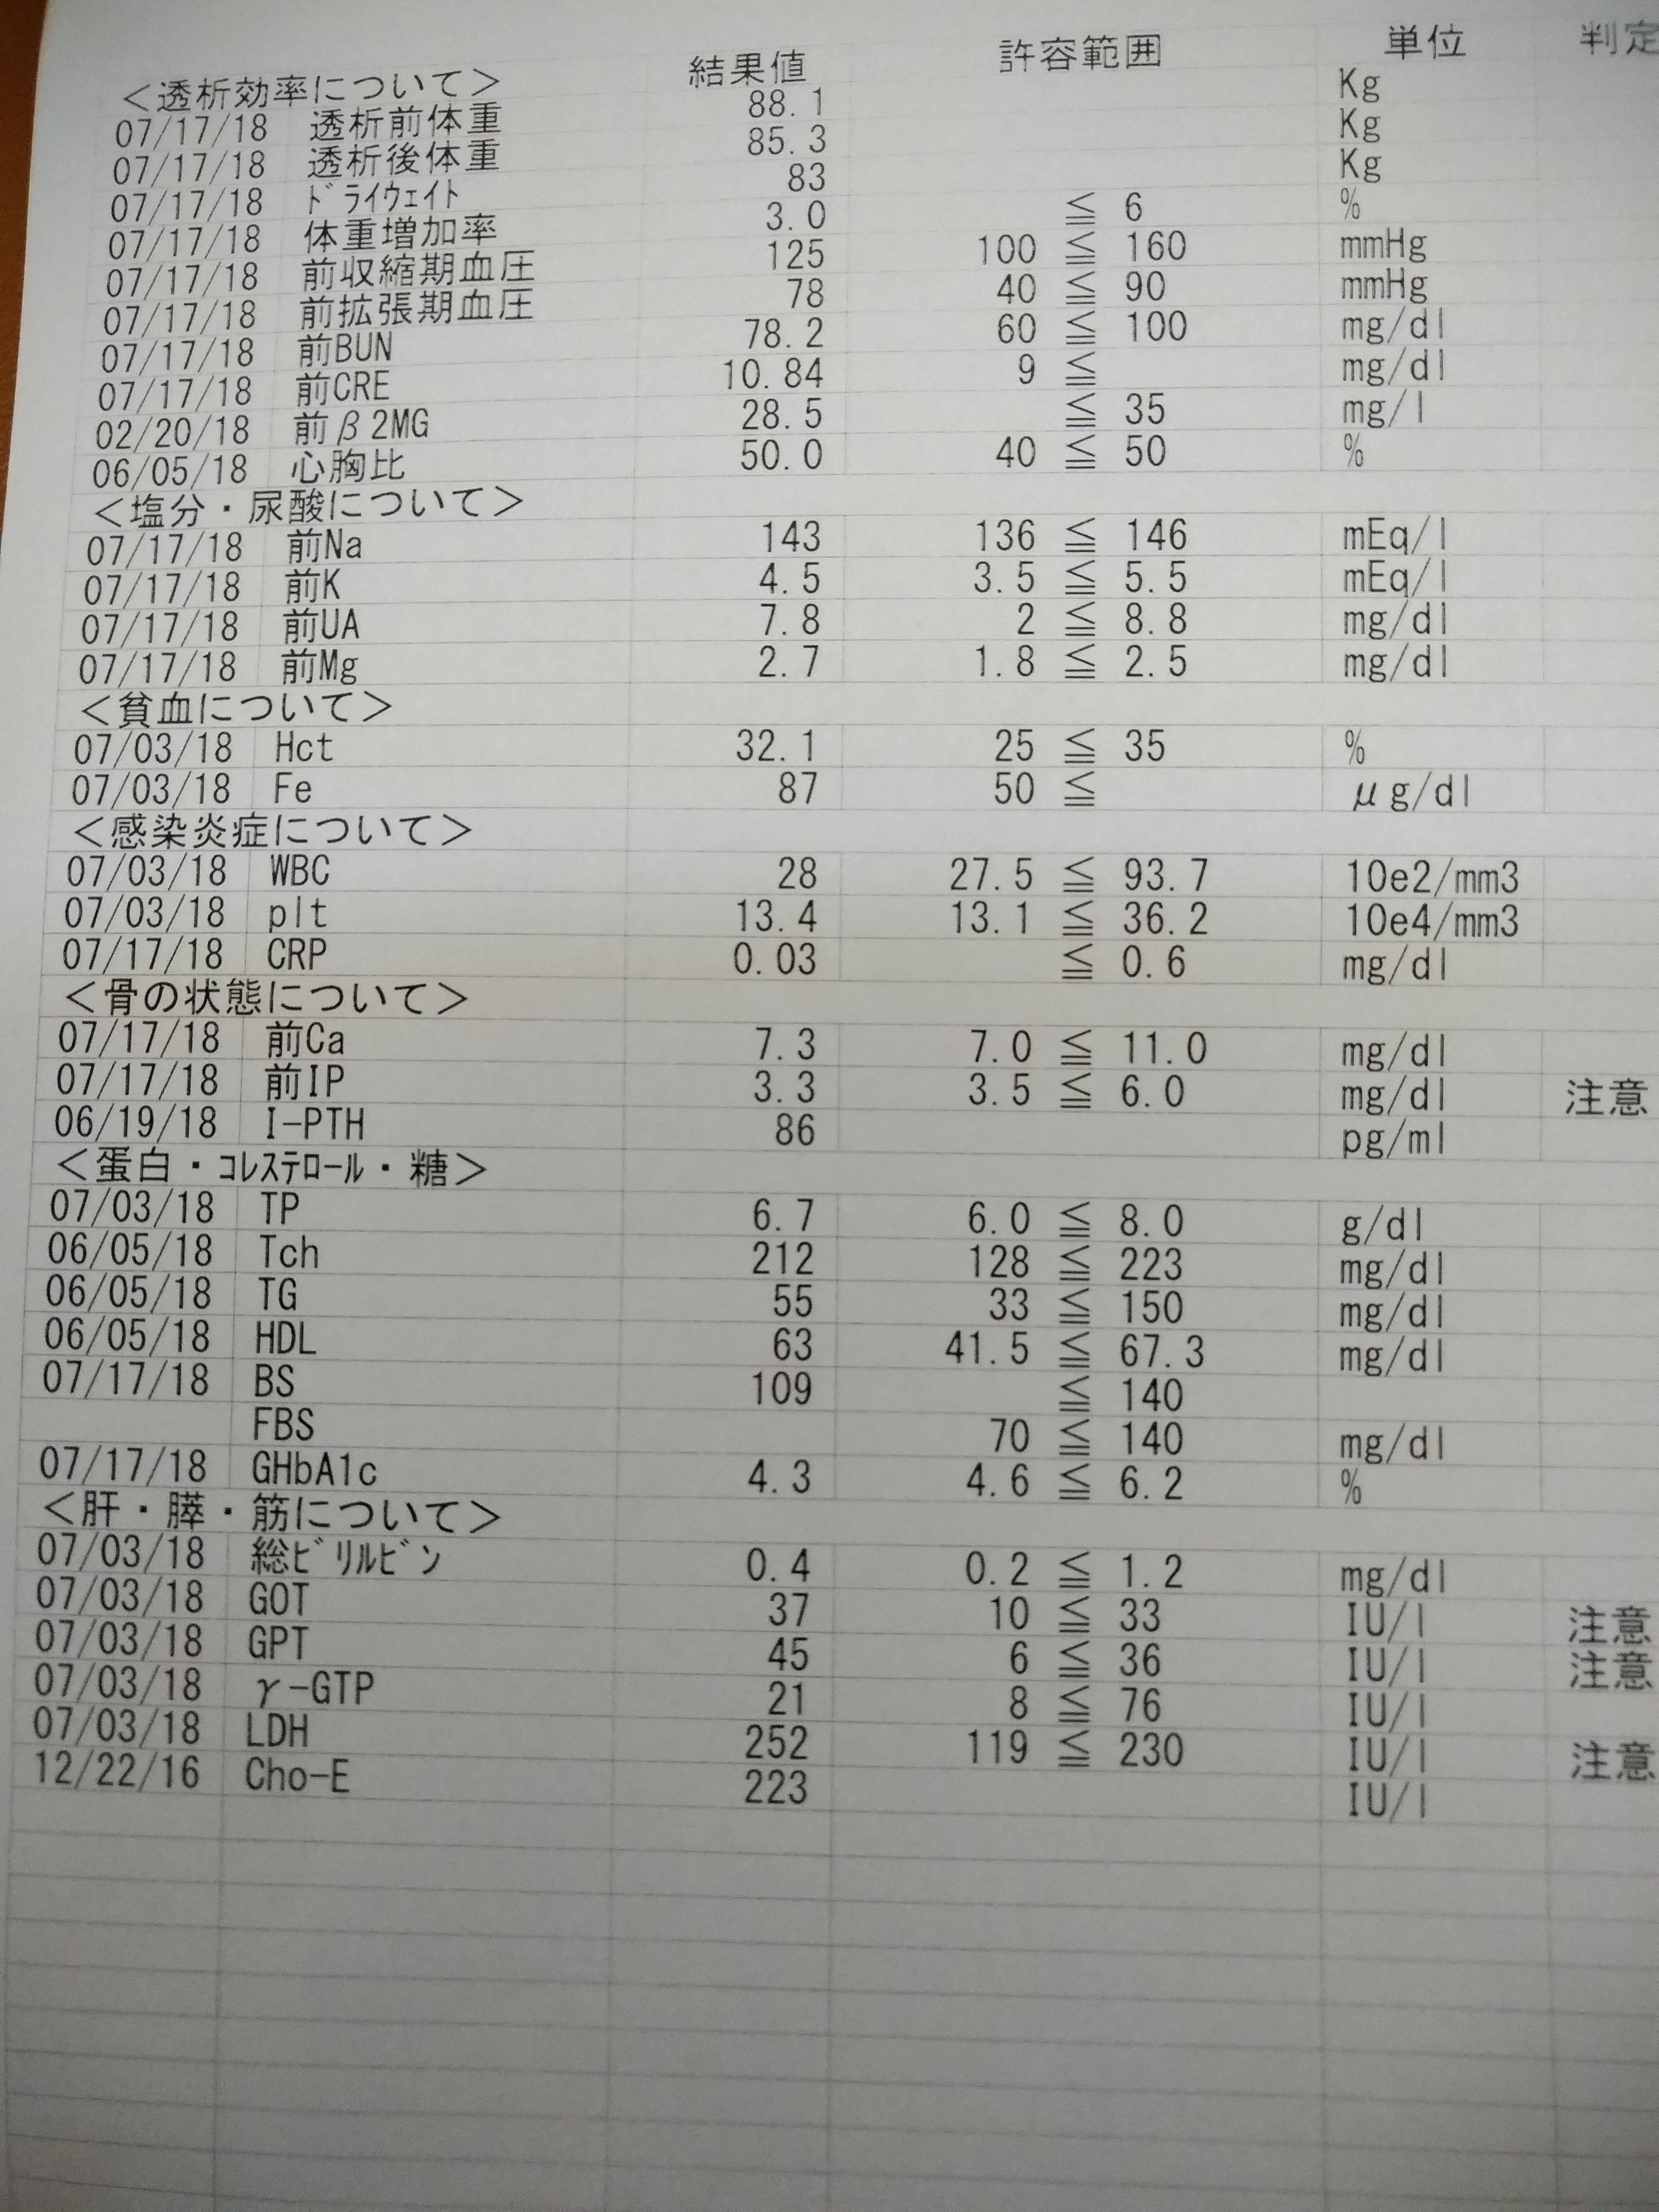 結果値 許容範囲 単位 判定
＜透析効率について＞
07/17/18 透析前体重 88.1 Kg
07/17/18 透析後体重 85.3 Kg
07/17/18 ﾄﾞﾗｲｳｪｲﾄ 83 Kg
07/17/18 体重増加率 3.0 ≦ 6 %
07/17/18 前収縮期血圧 125 100 ≦ 160 mmHg
07/17/18 前拡張期血圧 78 40 ≦ 90 mmHg
07/17/18 前BUN 78.2 60 ≦ 100 mg/dl
07/17/18 前CRE 10.84 9 ≦ mg/dl
02/20/18 前β2MG 28.5 ≦ 35 mg/l
06/05/18 心胸比 50.0 40 ≦ 50 %
＜塩分・尿酸について＞
07/17/18 前Na 143 136 ≦ 146 mEq/l
07/17/18 前K 4.5 3.5 ≦ 5.5 mEq/l
07/17/18 前UA 7.8 2 ≦ 8.8 mg/dl
07/17/18 前Mg 2.7 1.8 ≦ 2.5 mg/dl
＜貧血について＞
07/03/18 Hct 32.1 25 ≦ 35 %
07/03/18 Fe 87 50 ≦ μg/dl
＜感染炎症について＞
07/03/18 WBC 28 27.5 ≦ 93.7 10e2/mm3
07/03/18 plt 13.4 13.1 ≦ 36.2 10e4/mm3
07/17/18 CRP 0.03 ≦ 0.6 mg/dl
＜骨の状態について＞
07/17/18 前Ca 7.3 7.0 ≦ 11.0 mg/dl
07/17/18 前IP 3.3 3.5 ≦ 6.0 mg/dl 注意
06/19/18 I-PTH 86 pg/ml
＜蛋白・ｺﾚｽﾃﾛｰﾙ・糖＞
07/03/18 TP 6.7 6.0 ≦ 8.0 g/dl
06/05/18 Tch 212 128 ≦ 223 mg/dl
06/05/18 TG 55 33 ≦ 150 mg/dl
06/05/18 HDL 63 41.5 ≦ 67.3 mg/dl
07/17/18 BS 109 ≦ 140
FBS 70 ≦ 140 mg/dl
07/17/18 GHbA1c 4.3 4.6 ≦ 6.2 %
＜肝・膵・筋について＞
07/03/18 総ﾋﾞﾘﾙﾋﾞﾝ 0.4 0.2 ≦ 1.2 mg/dl
07/03/18 GOT 37 10 ≦ 33 IU/l 注意
07/03/18 GPT 45 6 ≦ 36 IU/l 注意
07/03/18 γ-GTP 21 8 ≦ 76 IU/l
07/03/18 LDH 252 119 ≦ 230 IU/l 注意
12/22/16 Cho-E 223 IU/l